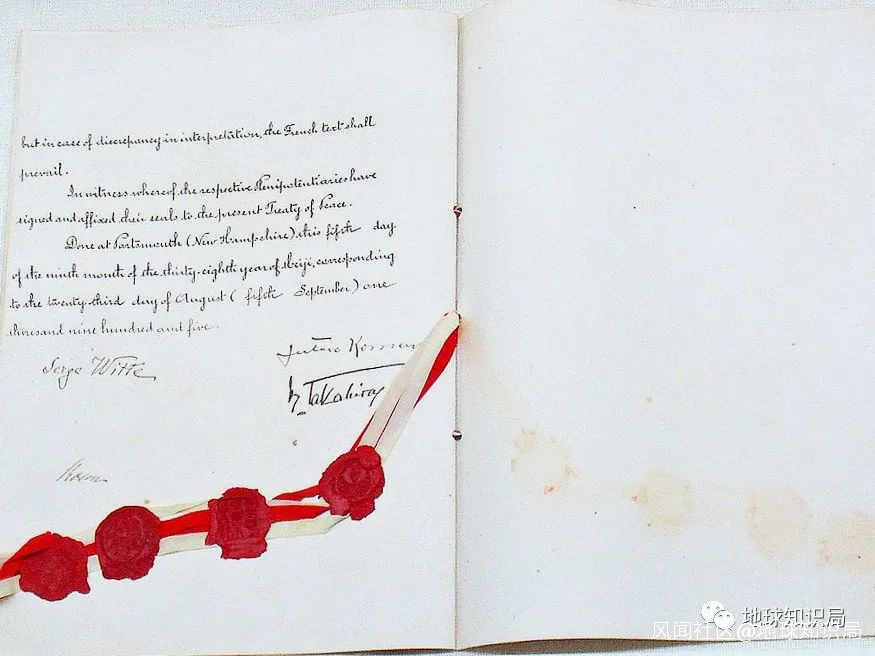 but in case of discrepancy in interpretation, the French text shall
prevail.
In witness whereof, the respective Plenipotentiaries have
signed and affixed their seals to the present Treaty of Peace.
Done at Portsmouth (New Hampshire) this fifth day
of the ninth month of the thirty-eighth year of Meiji, corresponding
to the twenty-third day of August (fifth September) one
thousand nine hundred and five.
Serge Witte
Jutaro Komura
K. Takahira
Rosen
地球知识局
风闻社区@地球知识局